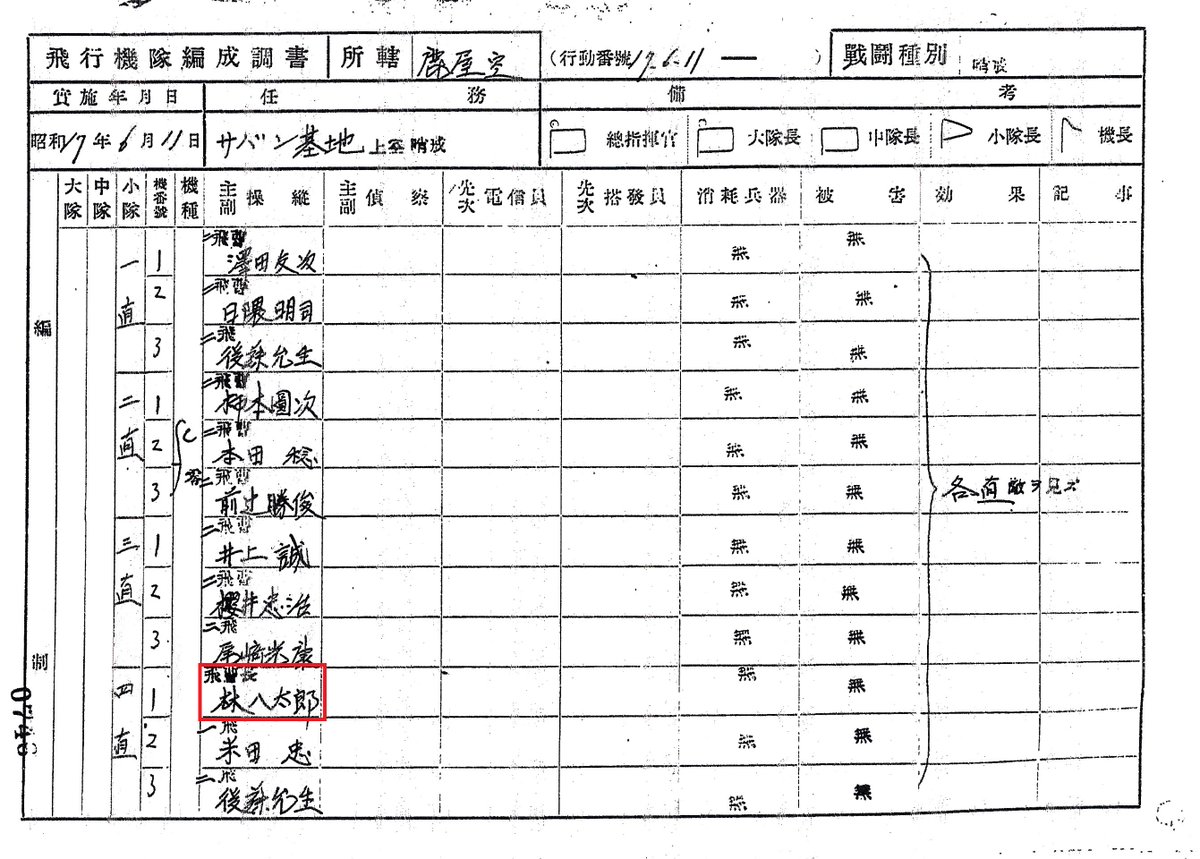 飛行機隊編成調書 所轄 鹿屋空 (行動番號17-6-11 ー ) 戰鬪種別 哨戒
實施年月日 任務 備考
昭和17年6月11日 サバン基地上空哨戒 總指揮官 大隊長 中隊長 小隊長 機長
編制 大隊 中隊 小隊 機番號 機種 主副操縱 主副偵察 先次電信員 先次搭發員 消耗兵器 被害 効果 記事
一直 1 二飛曹 澤田友次 無 無
2 二飛曹 日隈明司 無 無
3 二飛 後藤允生 無 無
二直 1 二飛曹 柿本圓次 無 無
2 二飛曹 本田稔 無 無
3 二飛曹 前辻勝俊 無 無 各直敵ヲ見ズ
零
三直 1 二飛曹 井上誠 無 無
2 二飛曹 櫻井忠治 無 無
3 二飛 尾﨑光康 無 無
四直 1 飛曹長 林八太郎 無 無
2 一飛 米田忠 無 無
3 二飛 後藤允生 無 無